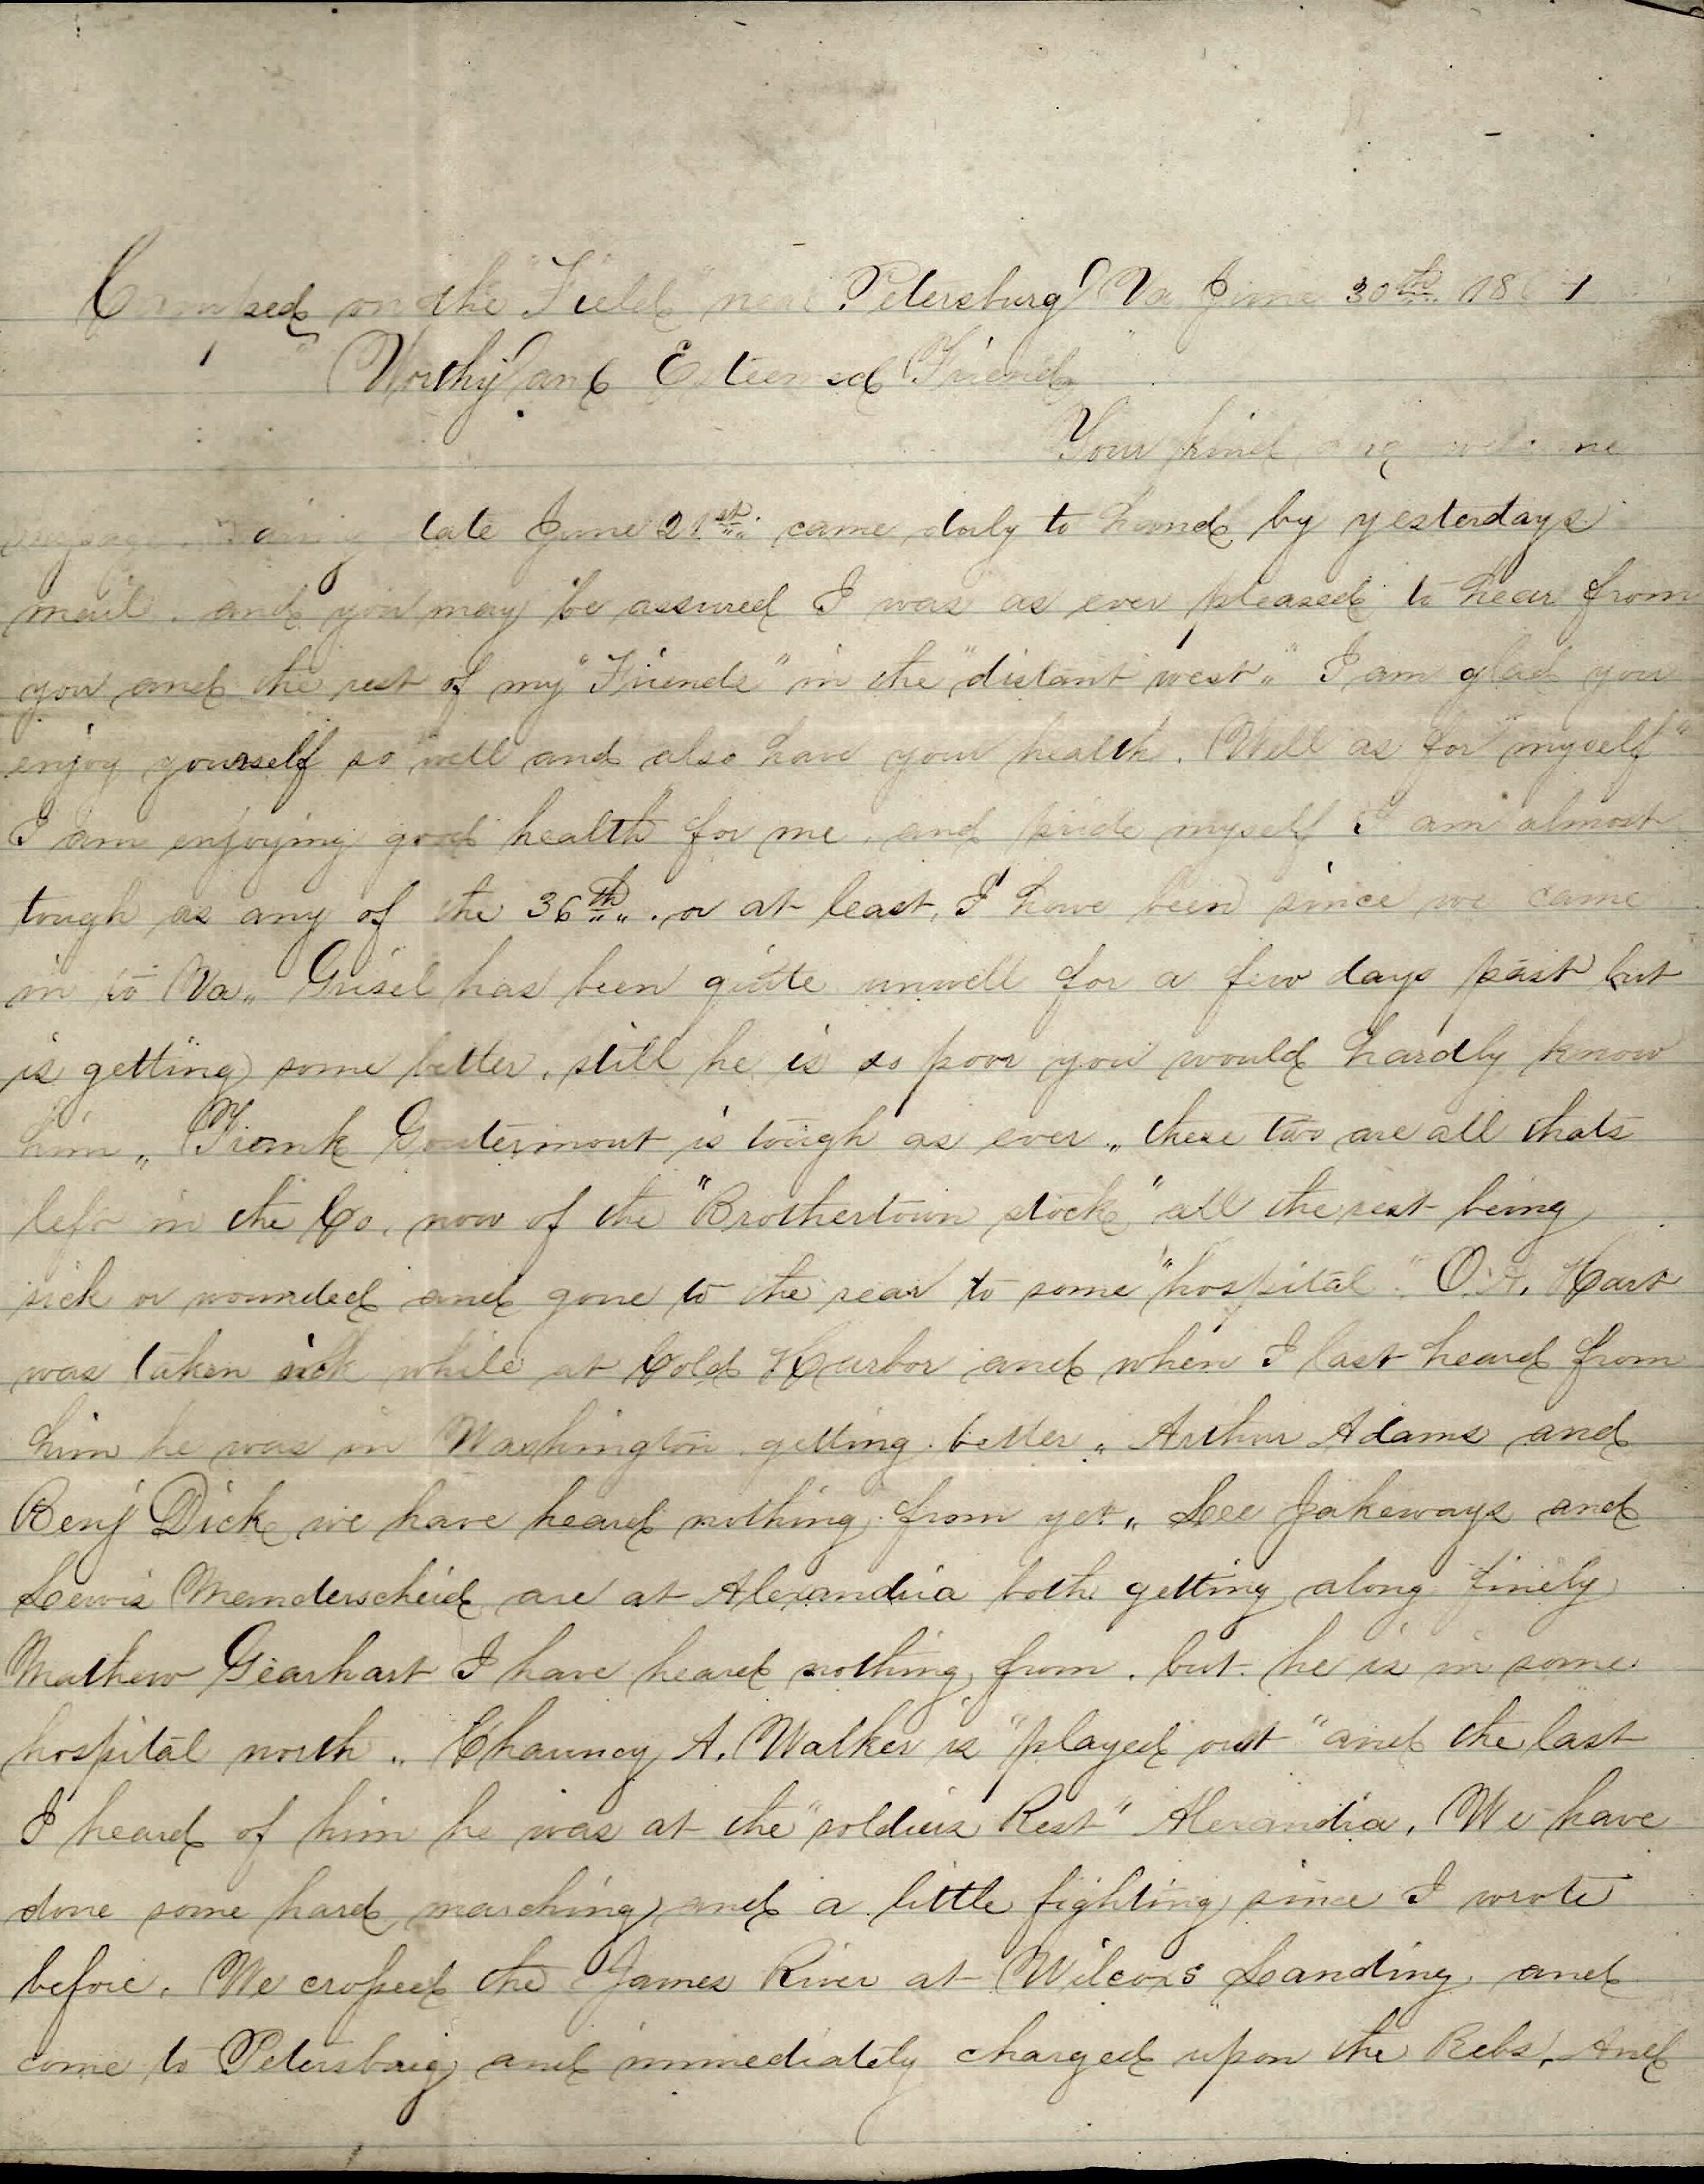 Camped on the "Field" near Petersburg Va June 30th 1864
Worthy and Esteemed Friend
Your kind and welcome
date June 21st. came duly to hand by yesterdays
mail. and you may be assured I was as ever pleased to hear from
you and the rest of my "Friends" in the "distant west" I am glad you
enjoy yourself so well and also have your health. Well as for "myself"
I am enjoying good health for me, and pride myself I am almost
tough as any of the 36th. or at least, I have been since we came
in to Va. Grisel has been quite unwell for a few days past but
is getting some better, still he is so poor you would hardly know
him. Frank Goutermout is tough as ever. these two are all thats
left in the Co. now of the "Brothertown stock" all the rest being
sick or wounded and gone to the rear to some "hospital" O.A. Hart
was taken sick while at Cold Harbor and when I last heard from
him he was in Washington getting better. Arthur Adams and
Benj Dick we have heard nothing from yet. Lee Jakeways and
Lewis Manderscheid are at Alexandria both getting along finely
Mathew Gearhart I have heard nothing from. but he is in some
hospital north. Chauncy A. Walker is "played out" and the last
I heard of him he was at the "soldiers Rest" Alexandria. We have
done some hard marching and a little fighting since I wrote
before. We crossed the James River at Wilcoxs Landing and
come to Petersburg and immediately charged upon the Rebs. And